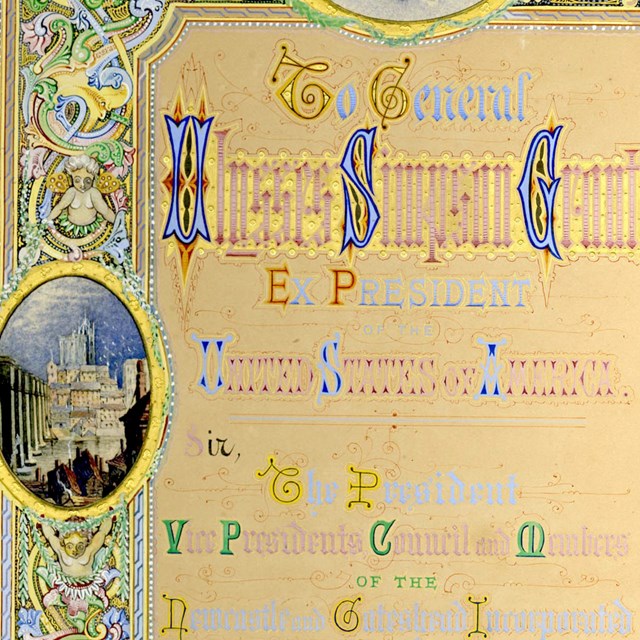 To General
Ulysses Simpson Grant
EX PRESIDENT
OF THE
UNITED STATES OF AMERICA.
Sir,
The President
Vice Presidents Council and Members
OF THE
Newcastle and Gateshead Incorporated